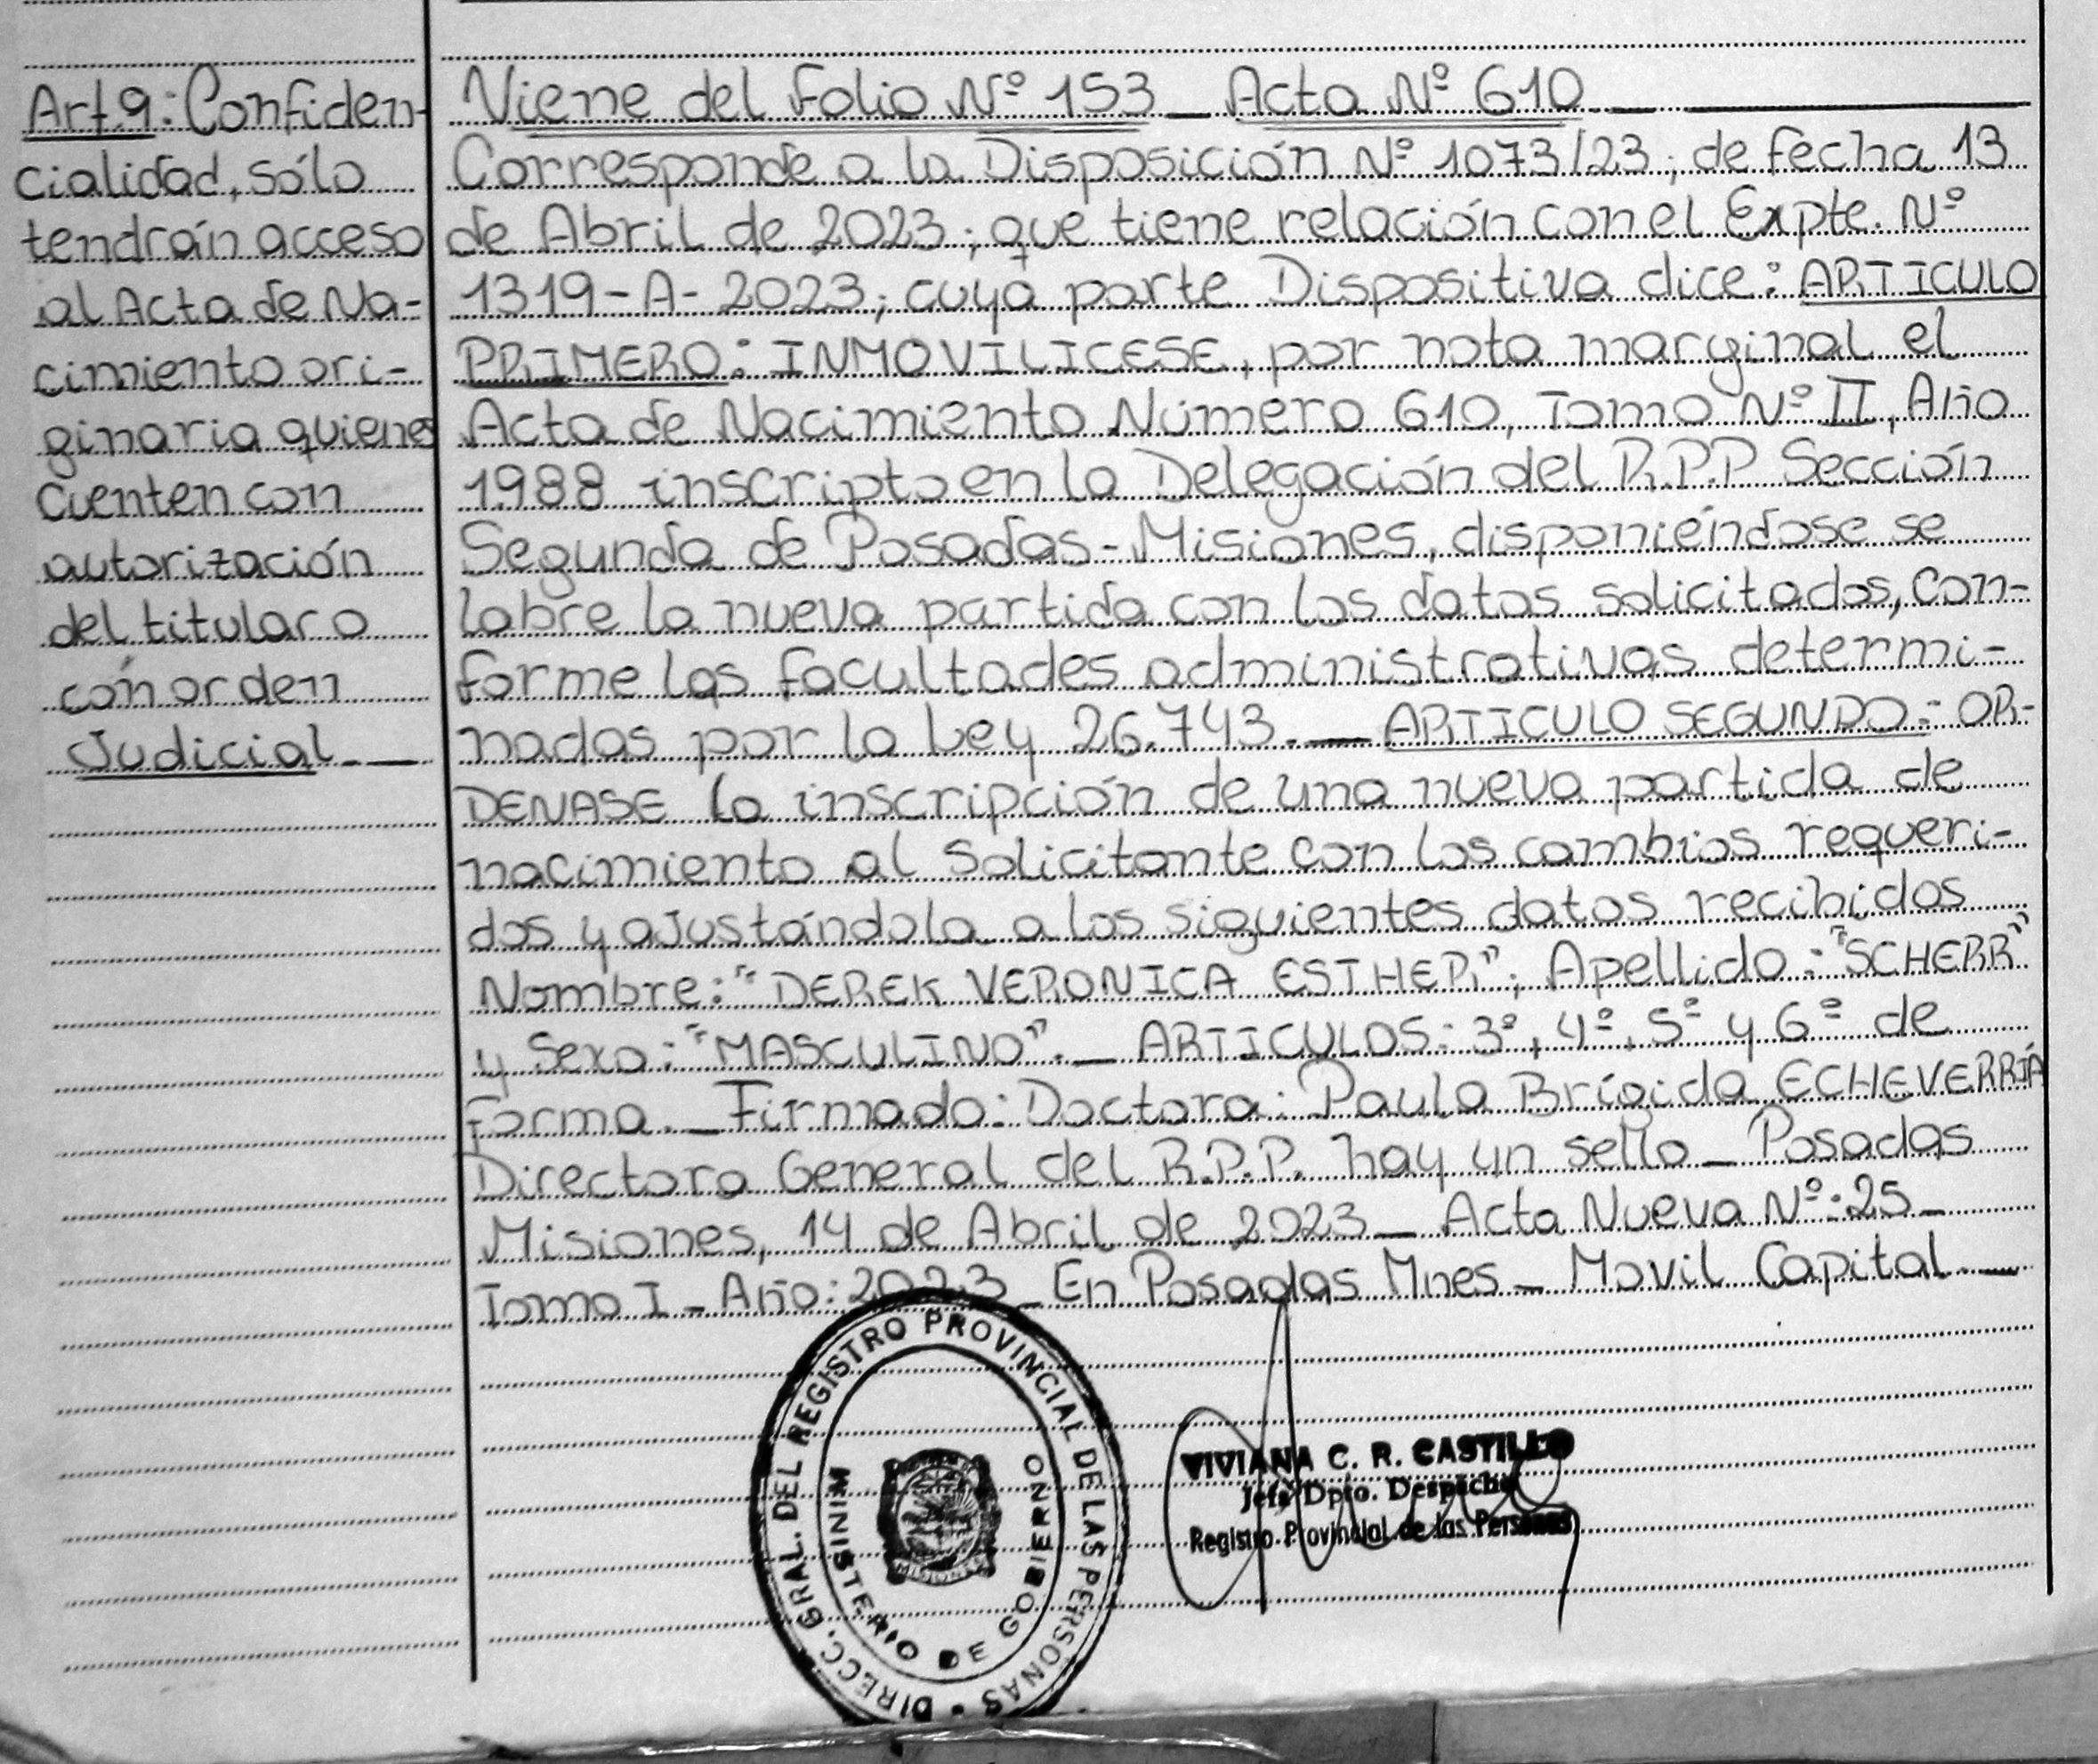 Art.9: Confiden-
cialidad, sólo
tendrán acceso
al Acta de Na-
cimiento ori-
ginaria quienes
cuenten con
autorización
del titular o
con orden
Judicial.—
Viene del Folio Nº 153 _ Acta Nº 610 _
Corresponde a la Disposición Nº 1073/23; de fecha 13
de Abril de 2023; que tiene relación con el Expte. Nº
1319-A-2023; cuya parte Dispositiva dice: ARTICULO
PRIMERO: INMOVILICESE, por nota marginal el
Acta de Nacimiento Número 610, Tomo Nº II, Año
1988 inscripto en la Delegación del R.P.P Sección
Segunda de Posadas - Misiones, disponiéndose se
labre la nueva partida con los datos solicitados, con-
forme las facultades administrativas determi-
nadas por la Ley 26.743.— ARTICULO SEGUNDO:- OR-
DENASE la inscripción de una nueva partida de
nacimiento al solicitante con los cambios requeri-
dos y ajustándola a los siguientes datos recibidos
Nombre: "DEREK VERONICA ESTHER"; Apellido: "SCHERR"
y Sexo: "MASCULINO"._ ARTICULOS: 3º, 4º, 5º y 6º de
forma._ Firmado: Doctora: Paula Brígida ECHEVERRÍA
Directora General del R.P.P. hay un sello _ Posadas
Misiones, 14 de Abril de 2023 _ Acta Nueva Nº: 25 _
Tomo I _ Año: 2023 _ En Posadas Mnes _ Movil Capital._
DIRECC. GRAL. DEL REGISTRO PROVINCIAL DE LAS PERSONAS -
MINISTERIO DE GOBIERNO
MISIONES
VIVIANA C. R. CASTILLO
Jefa Dpto. Despacho
Registro Provincial de las Personas